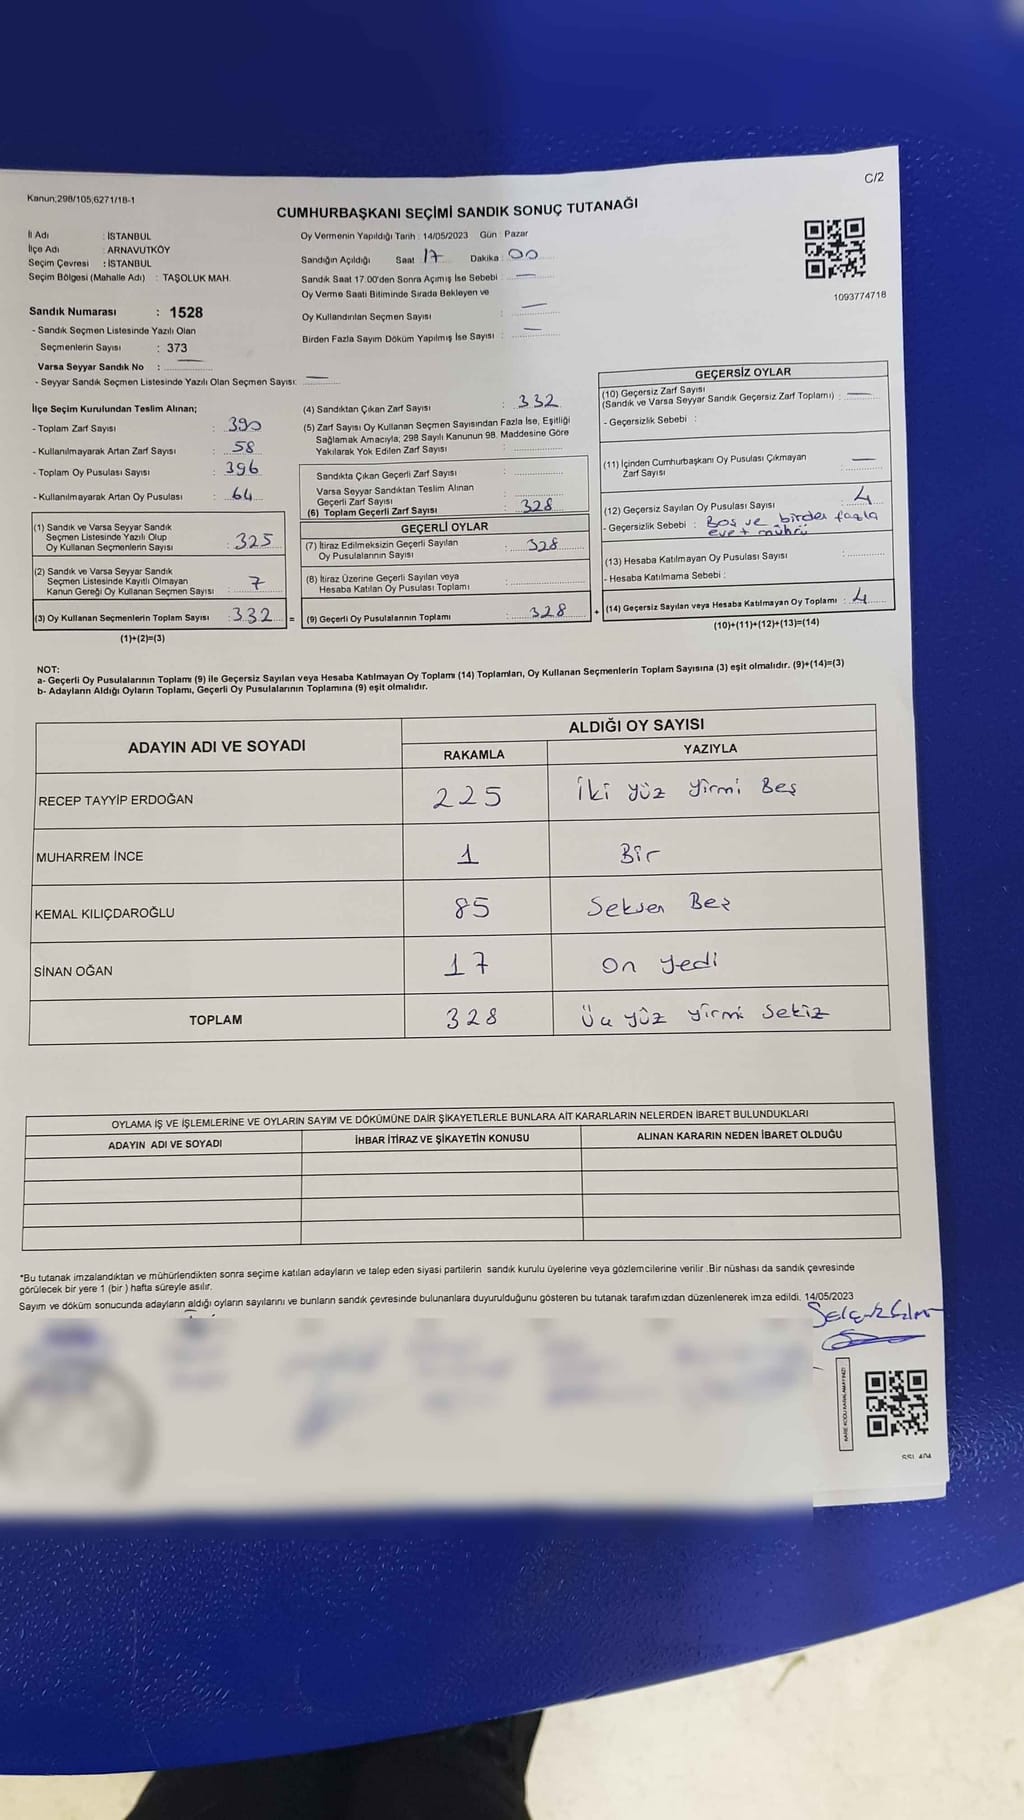 C/2
Kanun;298/105,6271/18-1
CUMHURBAŞKANI SEÇİMİ SANDIK SONUÇ TUTANAĞI
İl Adı : İSTANBUL
İlçe Adı : ARNAVUTKÖY
Seçim Çevresi : İSTANBUL
Seçim Bölgesi (Mahalle Adı) : TAŞOLUK MAH.
Oy Vermenin Yapıldığı Tarih : 14/05/2023 Gün : Pazar
Sandığın Açıldığı Saat 17 Dakika : 00
Sandık Saat 17.00'den Sonra Açımış İse Sebebi : —
Oy Verme Saati Bitiminde Sırada Bekleyen ve
Oy Kullandırılan Seçmen Sayısı : —
Birden Fazla Sayım Döküm Yapılmış İse Sayısı : —
1093774718
Sandık Numarası : 1528
- Sandık Seçmen Listesinde Yazılı Olan
Seçmenlerin Sayısı : 373
Varsa Seyyar Sandık No : —
- Seyyar Sandık Seçmen Listesinde Yazılı Olan Seçmen Sayısı: —
İlçe Seçim Kurulundan Teslim Alınan;
- Toplam Zarf Sayısı : 390
- Kullanılmayarak Artan Zarf Sayısı : 58
- Toplam Oy Pusulası Sayısı : 396
- Kullanılmayarak Artan Oy Pusulası : 64
(1) Sandık ve Varsa Seyyar Sandık
Seçmen Listesinde Yazılı Olup
Oy Kullanan Seçmenlerin Sayısı : 325
(2) Sandık ve Varsa Seyyar Sandık
Seçmen Listesinde Kayıtlı Olmayan
Kanun Gereği Oy Kullanan Seçmen Sayısı : 7
(3) Oy Kullanan Seçmenlerin Toplam Sayısı : 332 =
(1)+(2)=(3)
(4) Sandıktan Çıkan Zarf Sayısı : 332
(5) Zarf Sayısı Oy Kullanan Seçmen Sayısından Fazla İse, Eşitliği
Sağlamak Amacıyla; 298 Sayılı Kanunun 98. Maddesine Göre
Yakılarak Yok Edilen Zarf Sayısı :
Sandıkta Çıkan Geçerli Zarf Sayısı :
Varsa Seyyar Sandıktan Teslim Alınan
Geçerli Zarf Sayısı :
(6) Toplam Geçerli Zarf Sayısı : 328
GEÇERLİ OYLAR
(7) İtiraz Edilmeksizin Geçerli Sayılan
Oy Pusulalarının Sayısı : 328
(8) İtiraz Üzerine Geçerli Sayılan veya
Hesaba Katılan Oy Pusulası Toplamı :
(9) Geçerli Oy Pusulalarının Toplamı : 328 +
GEÇERSİZ OYLAR
(10) Geçersiz Zarf Sayısı
(Sandık ve Varsa Seyyar Sandık Geçersiz Zarf Toplamı) : —
- Geçersizlik Sebebi :
(11) İçinden Cumhurbaşkanı Oy Pusulası Çıkmayan
Zarf Sayısı : —
(12) Geçersiz Sayılan Oy Pusulası Sayısı : 4
- Geçersizlik Sebebi : Boş ve birden fazla
evet mührü
(13) Hesaba Katılmayan Oy Pusulası Sayısı :
- Hesaba Katılmama Sebebi :
(14) Geçersiz Sayılan veya Hesaba Katılmayan Oy Toplamı : 4
(10)+(11)+(12)+(13)=(14)
NOT:
a- Geçerli Oy Pusulalarının Toplamı (9) ile Geçersiz Sayılan veya Hesaba Katılmayan Oy Toplamı (14) Toplamları, Oy Kullanan Seçmenlerin Toplam Sayısına (3) eşit olmalıdır. (9)+(14)=(3)
b- Adayların Aldığı Oyların Toplamı, Geçerli Oy Pusulalarının Toplamına (9) eşit olmalıdır.
ADAYIN ADI VE SOYADI
ALDIĞI OY SAYISI
RAKAMLA YAZIYLA
RECEP TAYYİP ERDOĞAN 225 İki yüz yirmi Beş
MUHARREM İNCE 1 Bir
KEMAL KILIÇDAROĞLU 85 Seksen Beş
SİNAN OĞAN 17 On yedi
TOPLAM 328 Üç yüz yirmi sekiz
OYLAMA İŞ VE İŞLEMLERİNE VE OYLARIN SAYIM VE DÖKÜMÜNE DAİR ŞİKAYETLERLE BUNLARA AİT KARARLARIN NELERDEN İBARET BULUNDUKLARI
ADAYIN ADI VE SOYADI İHBAR İTİRAZ VE ŞİKAYETİN KONUSU ALINAN KARARIN NEDEN İBARET OLDUĞU
*Bu tutanak imzalandıktan ve mühürlendikten sonra seçime katılan adayların ve talep eden siyasi partilerin sandık kurulu üyelerine veya gözlemcilerine verilir .Bir nüshası da sandık çevresinde
görülecek bir yere 1 (bir ) hafta süreyle asılır.
Sayım ve döküm sonucunda adayların aldığı oyların sayılarını ve bunların sandık çevresinde bulunanlara duyurulduğunu gösteren bu tutanak tarafımızdan düzenlenerek imza edildi. 14/05/2023
KARE KODU KARALAMAYINIZ!